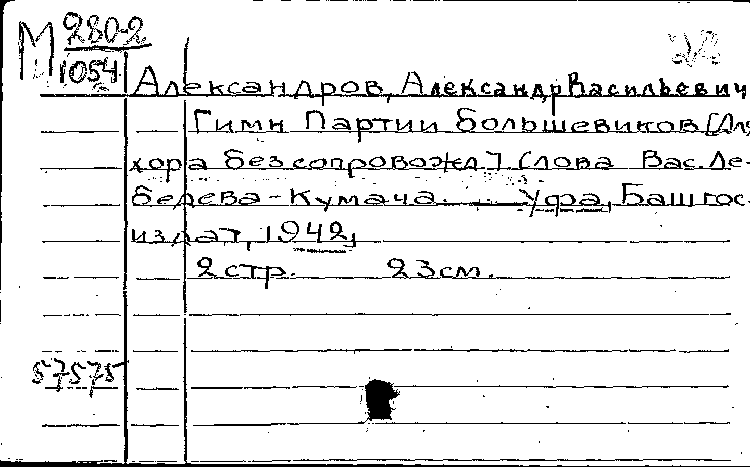 М 280-2
1054
Александров, Александр Васильевич
Гимн Партии большевиков [Для
хора без сопровожд.] Слова Вас. Ле-
бедева-Кумача. Уфа, Башгос-
издат, 1942,
2 стр. 23 см.
57575